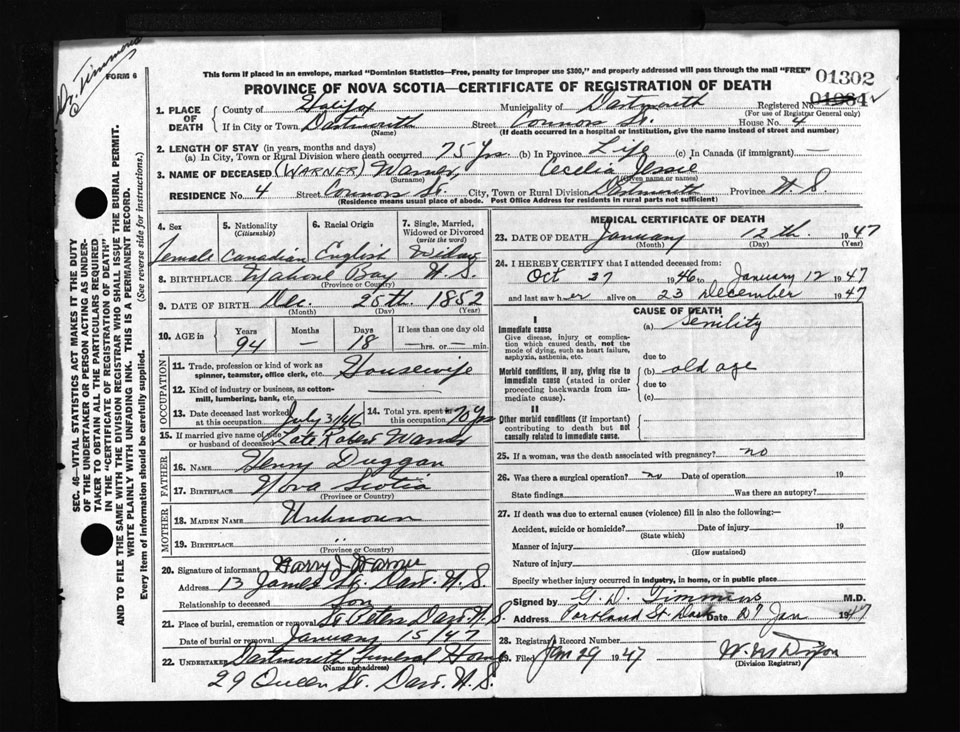 Dr. Timmons
FORM 6
This form if placed in an envelope, marked "Dominion Statistics—Free, penalty for improper use $300," and properly addressed will pass through the mail "FREE"
01302
PROVINCE OF NOVA SCOTIA—CERTIFICATE OF REGISTRATION OF DEATH
01984
1. PLACE OF DEATH
County of Halifax Municipality of Dartmouth Registered No.
(For use of Registrar General only)
If in City or Town Dartmouth Street Connors St. House No. 4
(Name) (If death occurred in a hospital or institution, give the name instead of street and number)
2. LENGTH OF STAY (in years, months and days)
(a) In City, Town or Rural Division where death occurred 75 Yrs. (b) In Province Life (c) In Canada (if immigrant) —
3. NAME OF DECEASED (WARNER) Warner, Cecelia Jessie
(Surname) (Given name or names)
RESIDENCE No. 4 Street Connors St. City, Town or Rural Division Dartmouth Province N.S.
(Residence means usual place of abode. Post Office Address for residents in rural parts not sufficient)
4. Sex 5. Nationality (Citizenship) 6. Racial Origin 7. Single, Married, Widowed or Divorced (write the word)
Female Canadian English Widow
8. BIRTHPLACE Mahone Bay N.S.
(Province or Country)
9. DATE OF BIRTH Dec. 25th. 1852
(Month) (Day) (Year)
10. AGE in Years Months Days If less than one day old
94 — 18 —hrs. or — min.
OCCUPATION
11. Trade, profession or kind of work as spinner, teamster, office clerk, etc. Housewife
12. Kind of industry or business, as cotton-mill, lumbering, bank, etc.
13. Date deceased last worked at this occupation July 31/46 14. Total yrs. spent in this occupation 70 Yrs
15. If married give name of wife or husband of deceased Late Robert Warner
FATHER
16. NAME Henry Duggan
17. BIRTHPLACE Nova Scotia
(Province or Country)
MOTHER
18. MAIDEN NAME Unknown
19. BIRTHPLACE "
(Province or Country)
20. Signature of informant Harry J Warner
Address 13 James St. Dart. N.S.
Relationship to deceased Son
21. Place of burial, cremation or removal St Peters Dart. N.S.
Date of burial or removal January 15/47
22. UNDERTAKER Dartmouth Funeral Home
(Name and address)
29 Queen St. Dart. N.S.
MEDICAL CERTIFICATE OF DEATH
23. DATE OF DEATH January 12th. 1947
(Month) (Day) (Year)
24. I HEREBY CERTIFY that I attended deceased from:
Oct 27 1946 to January 12 1947
and last saw her alive on 23 December 1947
CAUSE OF DEATH
I
Immediate cause (a) Senility
Give disease, injury or complication which caused death, not the mode of dying, such as heart failure, asphyxia, asthenia, etc.
due to
Morbid conditions, if any, giving rise to immediate cause (stated in order proceeding backwards from immediate cause).
(b) old age
due to
(c)
II
Other morbid conditions (if important) contributing to death but not causally related to immediate cause.
25. If a woman, was the death associated with pregnancy? no
26. Was there a surgical operation? no Date of operation 19
State findings Was there an autopsy?
27. If death was due to external causes (violence) fill in also the following:—
Accident, suicide or homicide? Date of injury 19
(State which)
Manner of injury
(How sustained)
Nature of injury
Specify whether injury occurred in industry, in home, or in public place
Signed by G. D. Timmins M.D.
Address Portland St Dart Date 27 Jan 1947
28. Registrar's Record Number
29. Filed Jan 29 1947
(Division Registrar)
SEC. 46—VITAL STATISTICS ACT MAKES IT THE DUTY
OF THE UNDERTAKER OR PERSON ACTING AS UNDERTAKER TO OBTAIN ALL THE PARTICULARS REQUIRED
IN THE "CERTIFICATE OF REGISTRATION OF DEATH"
AND TO FILE THE SAME WITH THE DIVISION REGISTRAR WHO SHALL ISSUE THE BURIAL PERMIT.
WRITE PLAINLY WITH UNFADING INK. THIS IS A PERMANENT RECORD.
Every item of information should be carefully supplied. (See reverse side for instructions.)